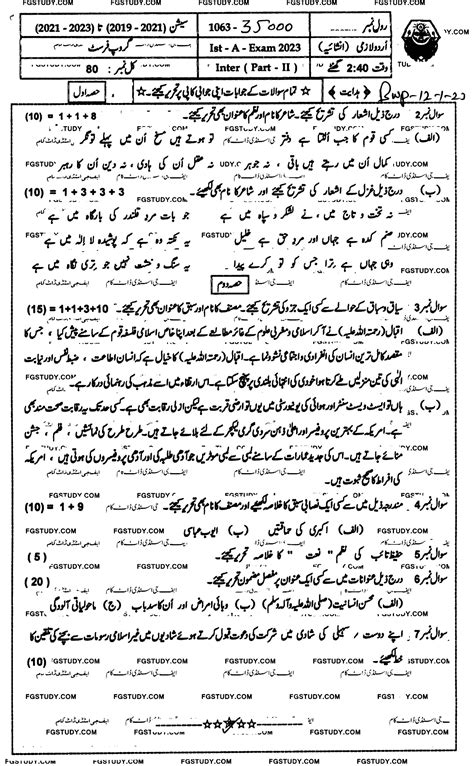 FGSTUDY.COM FGSTUDY.COM FGSTUDY.COM FGSTUDY.COM
رول نمبر 1063 - 35000 سیشن (2021 - 2019) تا (2023 - 2021)
اُردو لازمی (انشائیہ) Ist - A - Exam 2023 گروپ فرسٹ
وقت 2:40 گھنٹے Inter ( Part - II ) کل نمبر: 80
Bwp-12-1-23 ﴿ ہدایت ﴾ ☆ تمام سوالات کے جوابات اپنی جوابی کاپی پر تحریر کیجئے۔ ☆ حصہ اول
سوال نمبر 2 درج ذیل اشعار کی تشریح کیجئے۔ شاعر کا نام اور نظم کا عنوان بھی تحریر کیجئے۔ (10) = 1 + 1 + 8
(الف) کسی قوم کا جب اُلٹتا ہے دفتر تو ہوتے ہیں مسخ اُن میں پہلے تونگر
کمال اُن میں رہتے ہیں باقی ، نہ جوہر نہ عقل اُن کی ہادی ، نہ دین اُن کا رہبر
(ب) درج ذیل غزل کے اشعار کی تشریح کیجئے اور شاعر کا نام بھی لکھیئے۔ (10) = 1 + 3 + 3 + 3
نہ تخت و تاج میں ، نے لشکر و سپاہ میں ہے جو بات مردِ قلندر کی بارگاہ میں ہے
صنم کدہ ہے جہاں اور مردِ حق ہے خلیل یہ نکتہ وہ ہے کہ پوشیدہ لا اِلٰہ میں ہے
وہی جہاں ہے ترا جس کو تو کرے پیدا یہ سنگ و خشت نہیں جو تری نگاہ میں ہے
حصہ دوم
سوال نمبر 3 سیاق و سباق کے حوالے سے کسی ایک جزو کی تشریح کیجئے۔ مصنف کا نام اور سبق کا عنوان بھی تحریر کیجئے۔ (15) = 1+1+3+10
(الف) اقبال (رحمتہ اللہ علیہ) نے آ کر اسلامی و مغربی علوم کے غائر مطالعے کے بعد اپنا خاص اسلامی فلسفہ قوم کے سامنے پیش کیا ، جس کا
مقصد کامل ترین انسان کی انفرادی و اجتماعی نشوونما ہے۔ اقبال (رحمتہ اللہ علیہ) کا خیال ہے کہ انسان اطاعت ، ضبطِ نفس اور نیابت
الٰہی کی تین منزلیں طے کرتا ہوا خودی کی انتہائی بلندی پر پہنچ سکتا ہے۔ اس ارتقاء میں اسے مذہب کی رہنمائی درکار ہے۔
(ب) ہاں تو ایسٹ ویسٹ سنٹر اور ہوائی کی یونیورسٹی میں یوں تو ارضی قربت ہے لیکن ازلی رقابت بھی ہے۔ کسی حد تک یہ رقابت صحت مند بھی
ہے۔ امریکہ کے بہترین پروفیسر اور اعلیٰ دماغ سردی گرمی لیکچر کے لئے بلائے جاتے ہیں۔ طرح طرح کی نمائشیں ، فلم ، جشن
منائے جاتے ہیں۔ اس کی جدید عمارات کے سامنے لمبی سے لمبی موٹریں جو آدھی طلبہ کی اور آدھی پروفیسروں کی ہوتی ہیں ، امریکہ
کی افراط کا صحیح ثبوت ہیں۔
سوال نمبر 4 مندرجہ ذیل میں سے کسی ایک نصابی سبق کا خلاصہ لکھیئے اور مصنف کا نام بھی تحریر کیجئے۔ (10) = 1 + 9
(الف) اکبری کی حماقتیں (ب) ایوب عباسی
سوال نمبر 5 حفیظ تائب کی نظم " نعت " کا خلاصہ تحریر کیجئے۔ ( 5 )
سوال نمبر 6 درج ذیل عنوانات میں سے کسی ایک عنوان پر مفصل مضمون تحریر کیجئے۔ ( 20 )
(الف) محسنِ انسانیت (صلی اللہ علیہ وآلہ وسلم) (ب) وبائی امراض اور اُن کا سدِباب (ج) ماحولیاتی آلودگی
سوال نمبر 7 اپنے دوست / سہیلی کی شادی میں شرکت کی دعوت قبول کرتے ہوئے شادیوں میں غیر اسلامی رسومات سے بچنے کی تلقین کا
خط لکھیئے۔ (10)
FGSTUDY.COM FGSTUDY.COM FGSTUDY.COM FGSTUDY.COM